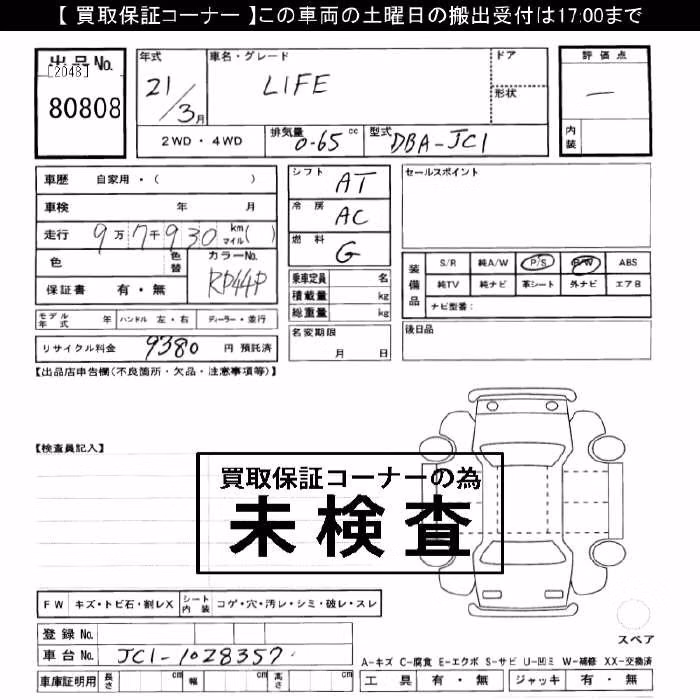 【 買取保証コーナー 】この車両の土曜日の搬出受付は17:00まで
出品No.
[2048]
80808
年式
21/3月
車名・グレード
LIFE
ドア
形状
評価点
—
内装
2WD・4WD
排気量 0.65 cc
型式 DBA-JC1
車歴 自家用・( )
車検 年 月
走行 9万7千930 km マイル( )
色 色替
カラーNo.
RP44P
保証書 有・無
シフト AT
冷房 AC
燃料 G
乗車定員 名
積載量 kg
総重量 kg
名変期限
月 日
セールスポイント
装備品
S/R 純A/W P/S P/W ABS
純TV 純ナビ 革シート 外ナビ エアB
ナビ型番:
後日品
モデル年式 年 ハンドル 左・右 ディーラー・並行
リサイクル料金 9380 円 預託済
【出品店申告欄(不良箇所・欠品・注意事項等)】
【検査員記入】
買取保証コーナーの為
未検査
FW キズ・トビ石・割レX シート内装 コゲ・穴・汚レ・シミ・破レ・スレ
登録No.
車台No. JC1-1028357
車庫証明用 長さ cm 幅 cm 高さ cm
スペア
A-キズ C-腐食 E-エクボ S-サビ U-凹ミ W-補修 XX-交換済
工具 有・無 ジャッキ 有・無